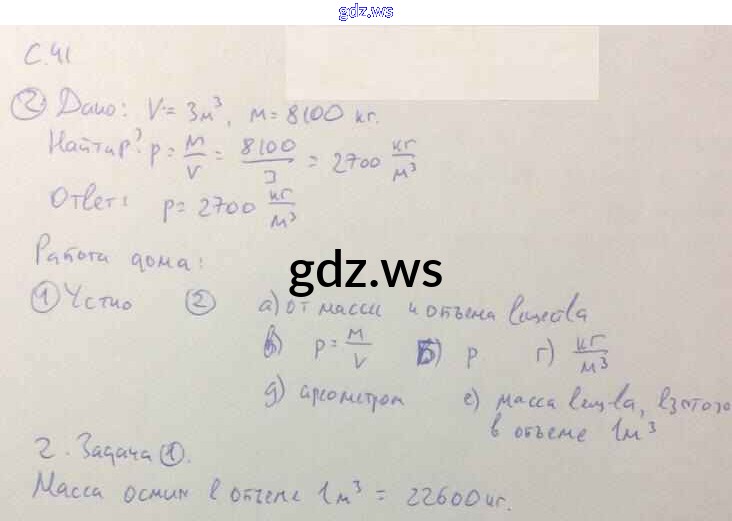 gdz.ws
С.41
② Дано: V = 3м³, м = 8100 кг.
Найти р? р = м/V = 8100/3 = 2700 кг/м³
Ответ: р = 2700 кг/м³
Работа дома:
gdz.ws
① Устно ② а) от массы и объема вещества
в) р = м/V Б) р г) кг/м³
д) ареометром е) масса вещ-ва, взятого
в объеме 1м³
2. Задача ①.
Масса осмия в объеме 1м³ = 22600 кг.